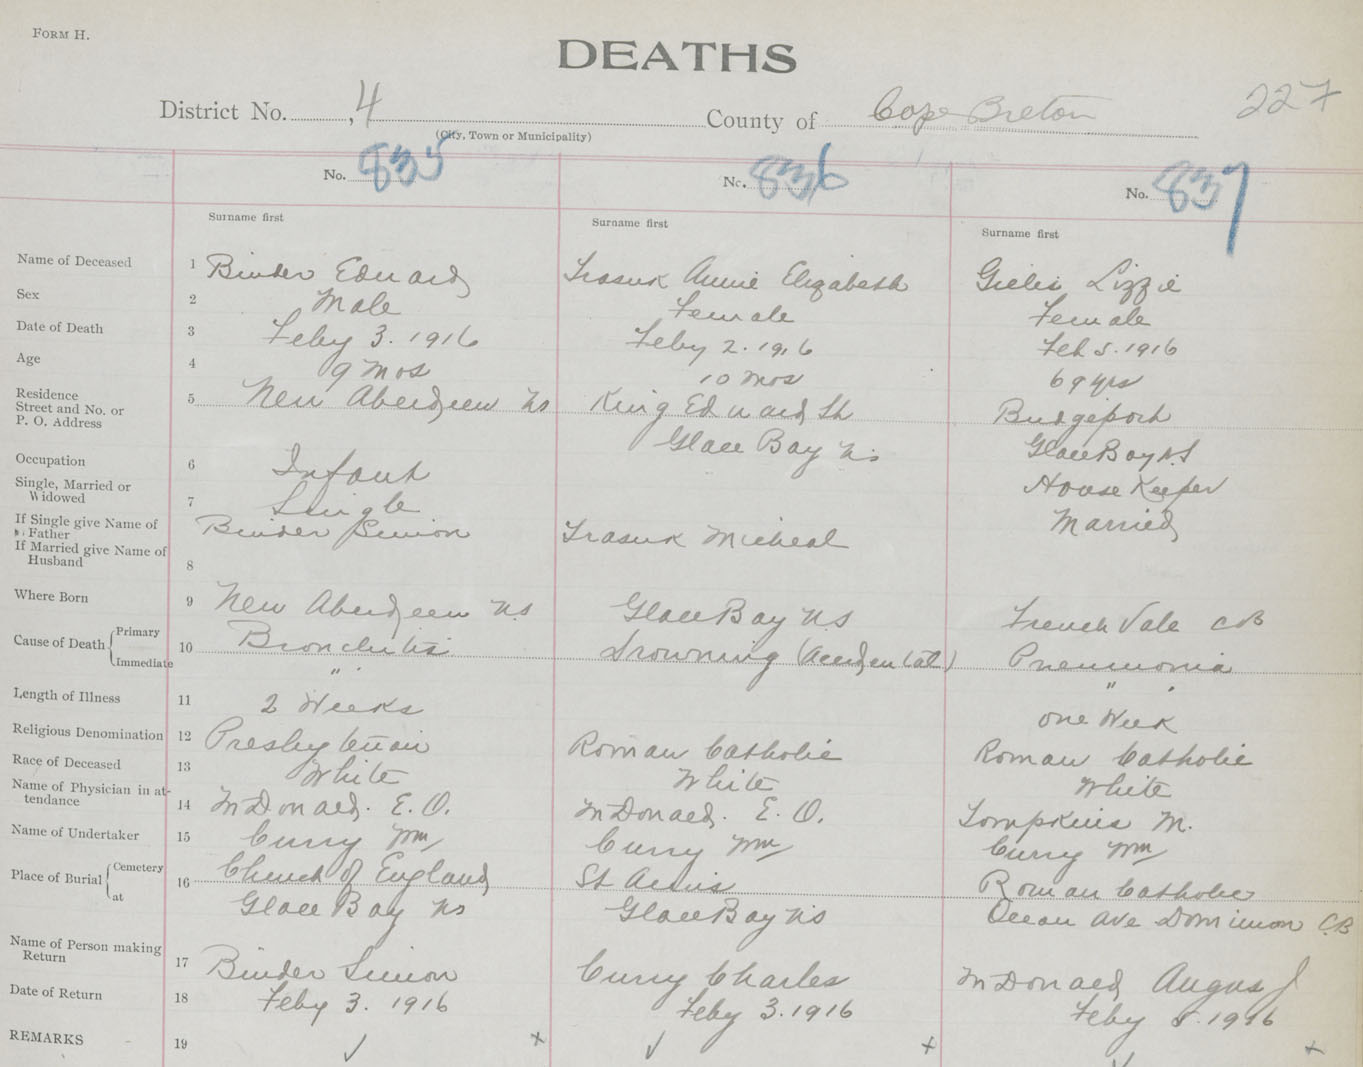 FORM H.
DEATHS
District No. 4 County of Cape Breton 227
(City, Town or Municipality)
No. 835 No. 836 No. 837
Surname first Surname first Surname first
Name of Deceased 1 Binder Edward Trasuk Annie Elizabeth Gielis Lizzie
Sex 2 Male Female Female
Date of Death 3 Feby 3. 1916 Feby 2. 1916 Feb 5. 1916
Age 4 9 mos 10 mos 69 yrs
Residence
Street and No. or 5 New Aberdeen NS King Edward St Bridgeport
P. O. Address
Glace Bay NS Glace Bay NS
Occupation 6 Infant House Keeper
Single, Married or
Widowed 7 Single Married
If Single give Name of
Father Binder Simon Trasuk Micheal
If Married give Name of
Husband 8
Where Born 9 New Aberdeen NS Glace Bay NS French Vale CB
Cause of Death Primary 10 Bronchitis Drowning (Accidental) Pneumonia
Immediate " "
Length of Illness 11 2 Weeks one Week
Religious Denomination 12 Presbyterian Roman Catholic Roman Catholic
Race of Deceased 13 White White White
Name of Physician in at-
tendance 14 McDonald. E. O. McDonald. E. O. Tompkins M.
Name of Undertaker 15 Curry Wm Curry Wm Curry Wm
Place of Burial Cemetery 16 Church of England St Anns Roman Catholic
at Glace Bay NS Glace Bay NS Ocean Ave Dominion C.B
Name of Person making
Return 17 Binder Simon Curry Charles McDonald Angus J
Date of Return 18 Feby 3. 1916 Feby 3. 1916 Feby 5. 1916
REMARKS 19 ✓ x ✓ x ✓ x